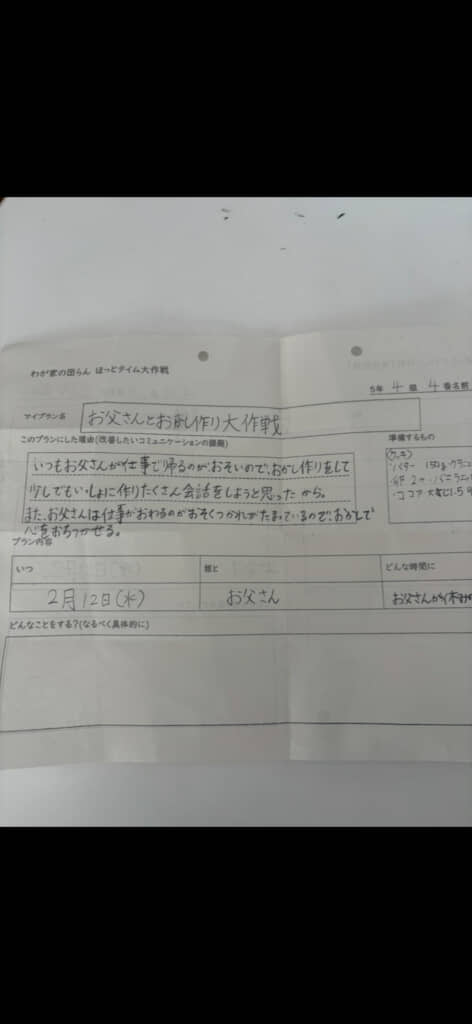 わが家の団らん ほっとタイム大作戦
5年 4 組 4 番名前
マイプラン名
お父さんとお菓子作り大作戦
このプランにした理由(改善したいコミュニケーションの課題)
いつもお父さんが仕事で帰るのがおそいので、おかし作りをして
少しでもいっしょに作りたくさん会話をしようと思ったから。
また、お父さんは仕事がおわるのがおそくつかれがたまっているので、おかしで
心をおちつかせる。
準備するもの
・バター 150g
・卵 2コ・バニラ
・ココア 大さじ1.5
プラン内容
いつ
誰と
どんな時間に
2月 12日(水)
お父さん
お父さんが休み
どんなことをする?(なるべく具体的に)